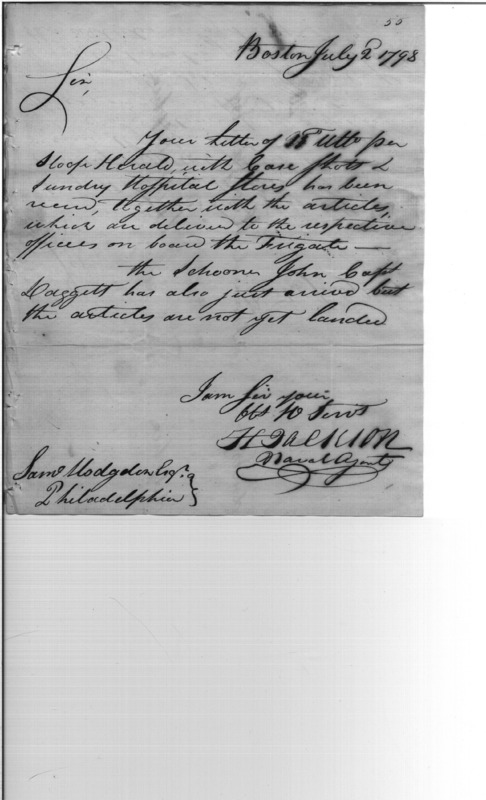 55
Boston July 2d 1798
Sir,
Your Letter of 15 Ulto per
Sloop Herald, with Case Shots &
Sundry Hospital Stores has been
receivd, together with the articles,
which are deliverd to the respective
officers on board the Frigate —
the Schooner John Capt
Daggett has also just arrived but
the articles are not yet landed
I am Sir your
Obt Hb Servt
H Jackson
Naval Agent
Saml Hodgdon Esqr.
Philadelphia